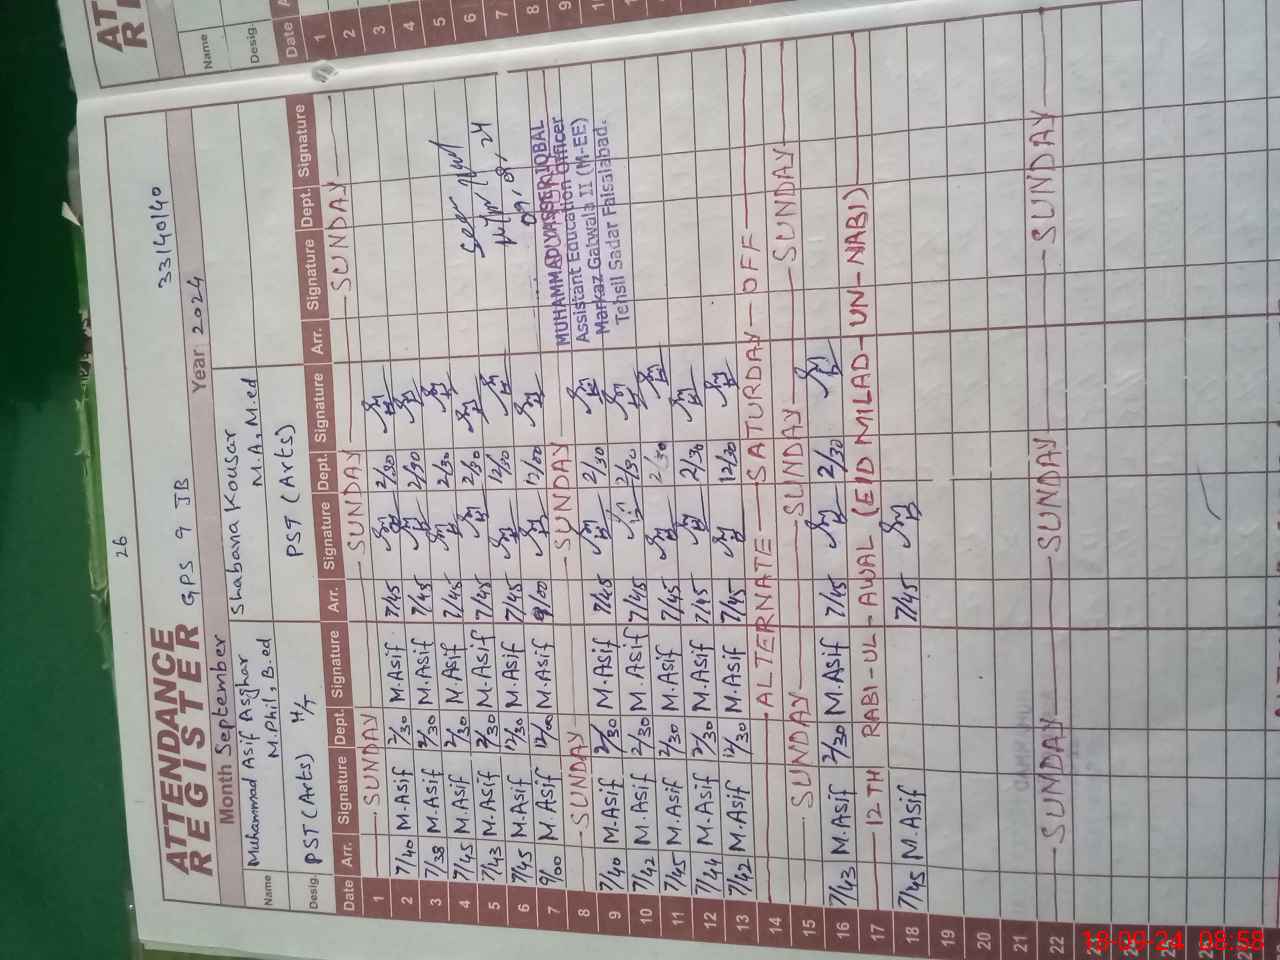 26
33140140
ATTENDANCE
REGISTER
GPS 9 JB
Month September
Year 2024
Name
Muhammad Asif Asghar
M.Phil, B.ed
Shabana Kousar
M.A, M.ed
Desig.
PST (Arts) H/T
PST (Arts)
Date Arr. Signature Dept. Signature Arr. Signature Dept. Signature Arr. Signature Dept. Signature
1 SUNDAY SUNDAY SUNDAY
2 7/40 M.Asif 2/30 M.Asif 7/45 2/30
3 7/38 M.Asif 2/30 M.Asif 7/45 2/30
4 7/45 M.Asif 2/30 M.Asif 7/45 2/30
5 7/43 M.Asif 2/30 M.Asif 7/45 2/30
6 7/45 M.Asif 12/30 M.Asif 7/45 12/30
7 9/00 M.Asif 12/00 M.Asif 9/00 12/00
8 SUNDAY SUNDAY
MUHAMMAD YASSER IQBAL
Assistant Education Officer
Markaz Gatwala II (M-EE)
Tehsil Sadar Faisalabad.
9 7/40 M.Asif 2/30 M.Asif 7/45 2/30
10 7/42 M.Asif 2/30 M.Asif 7/45 2/30
11 7/45 M.Asif 2/30 M.Asif 7/45 2/30
12 7/44 M.Asif 2/30 M.Asif 7/45 2/30
13 7/42 M.Asif 12/30 M.Asif 7/45 12/30
14 ALTERNATE SATURDAY OFF
15 SUNDAY SUNDAY SUNDAY
16 7/43 M.Asif 2/30 M.Asif 7/45 2/30
17 12 TH RABI-UL-AWAL (EID MILAD-UN-NABI)
18 7/45 M.Asif 7/45
19
20
21
22 SUNDAY SUNDAY SUNDAY
ATT
RE
Name
Desig
Date A
1
2
3
4
5
6
7
8
9
18-09-24 08:58